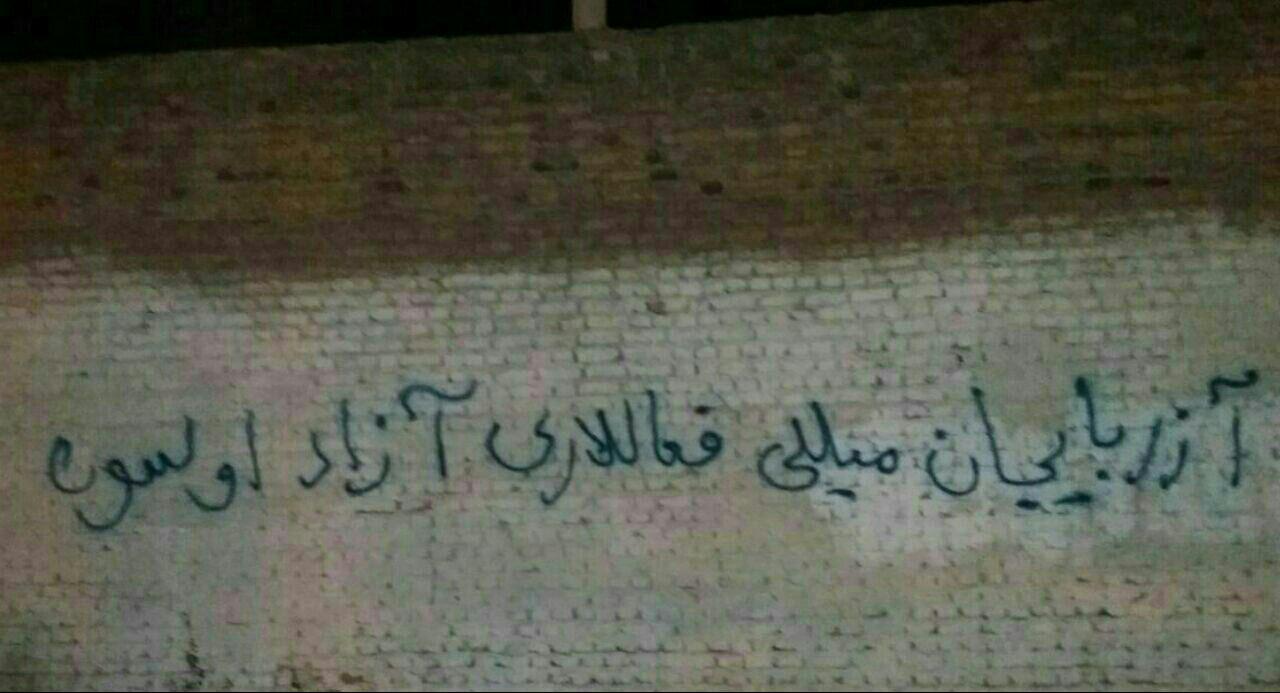 آزربایجان میللی فعاللاری آزاد اولسون